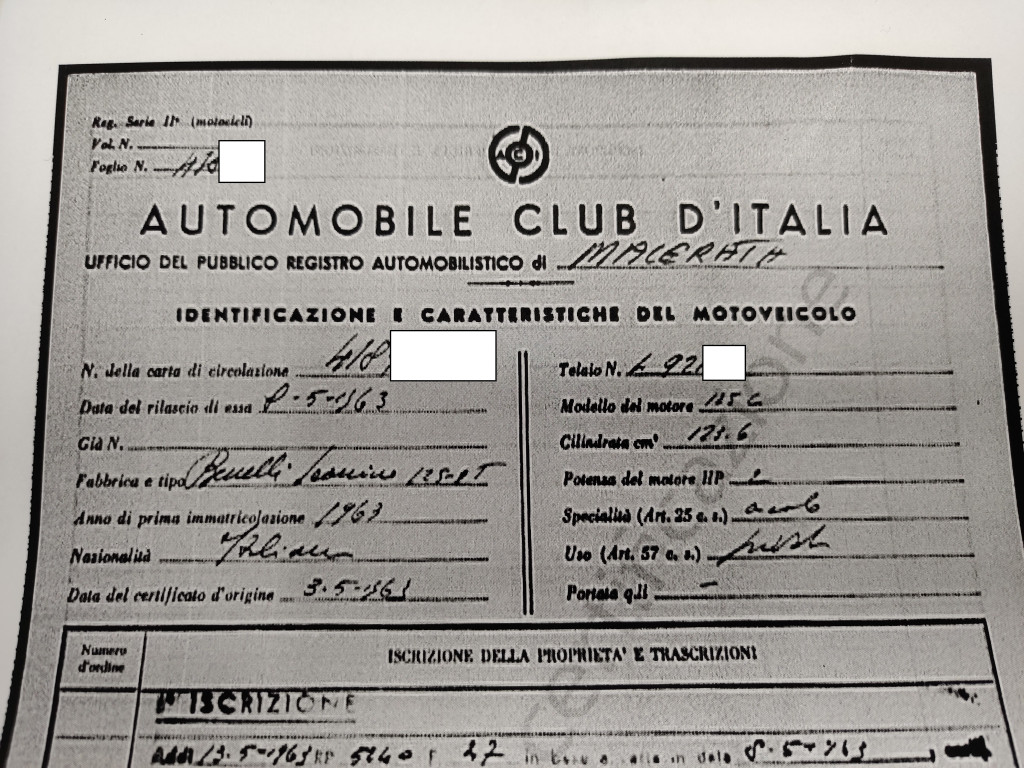 Reg. Serie IIª (motocicli)
Vol. N.
Foglio N.
A C I
AUTOMOBILE CLUB D'ITALIA
UFFICIO DEL PUBBLICO REGISTRO AUTOMOBILISTICO di MACERATA
IDENTIFICAZIONE E CARATTERISTICHE DEL MOTOVEICOLO
N. della carta di circolazione 418
Data del rilascio di essa 8-5-1963
Già N.
Fabbrica e tipo Benelli Leonino 125-2T
Anno di prima immatricolazione 1963
Nazionalità Italiana
Data del certificato d'origine 3-5-1963
Telaio N. L 92
Modello del motore 125 L
Cilindrata cm³ 123.6
Potenza del motore HP 2
Specialità (Art. 25 c. s.)
Uso (Art. 57 c. s.)
Portata q.li -
Numero d'ordine
ISCRIZIONE DELLA PROPRIETA' E TRASCRIZIONI
1ª ISCRIZIONE
Addì 13-5-1963 RP 5140 F 27 in data 8-5-963